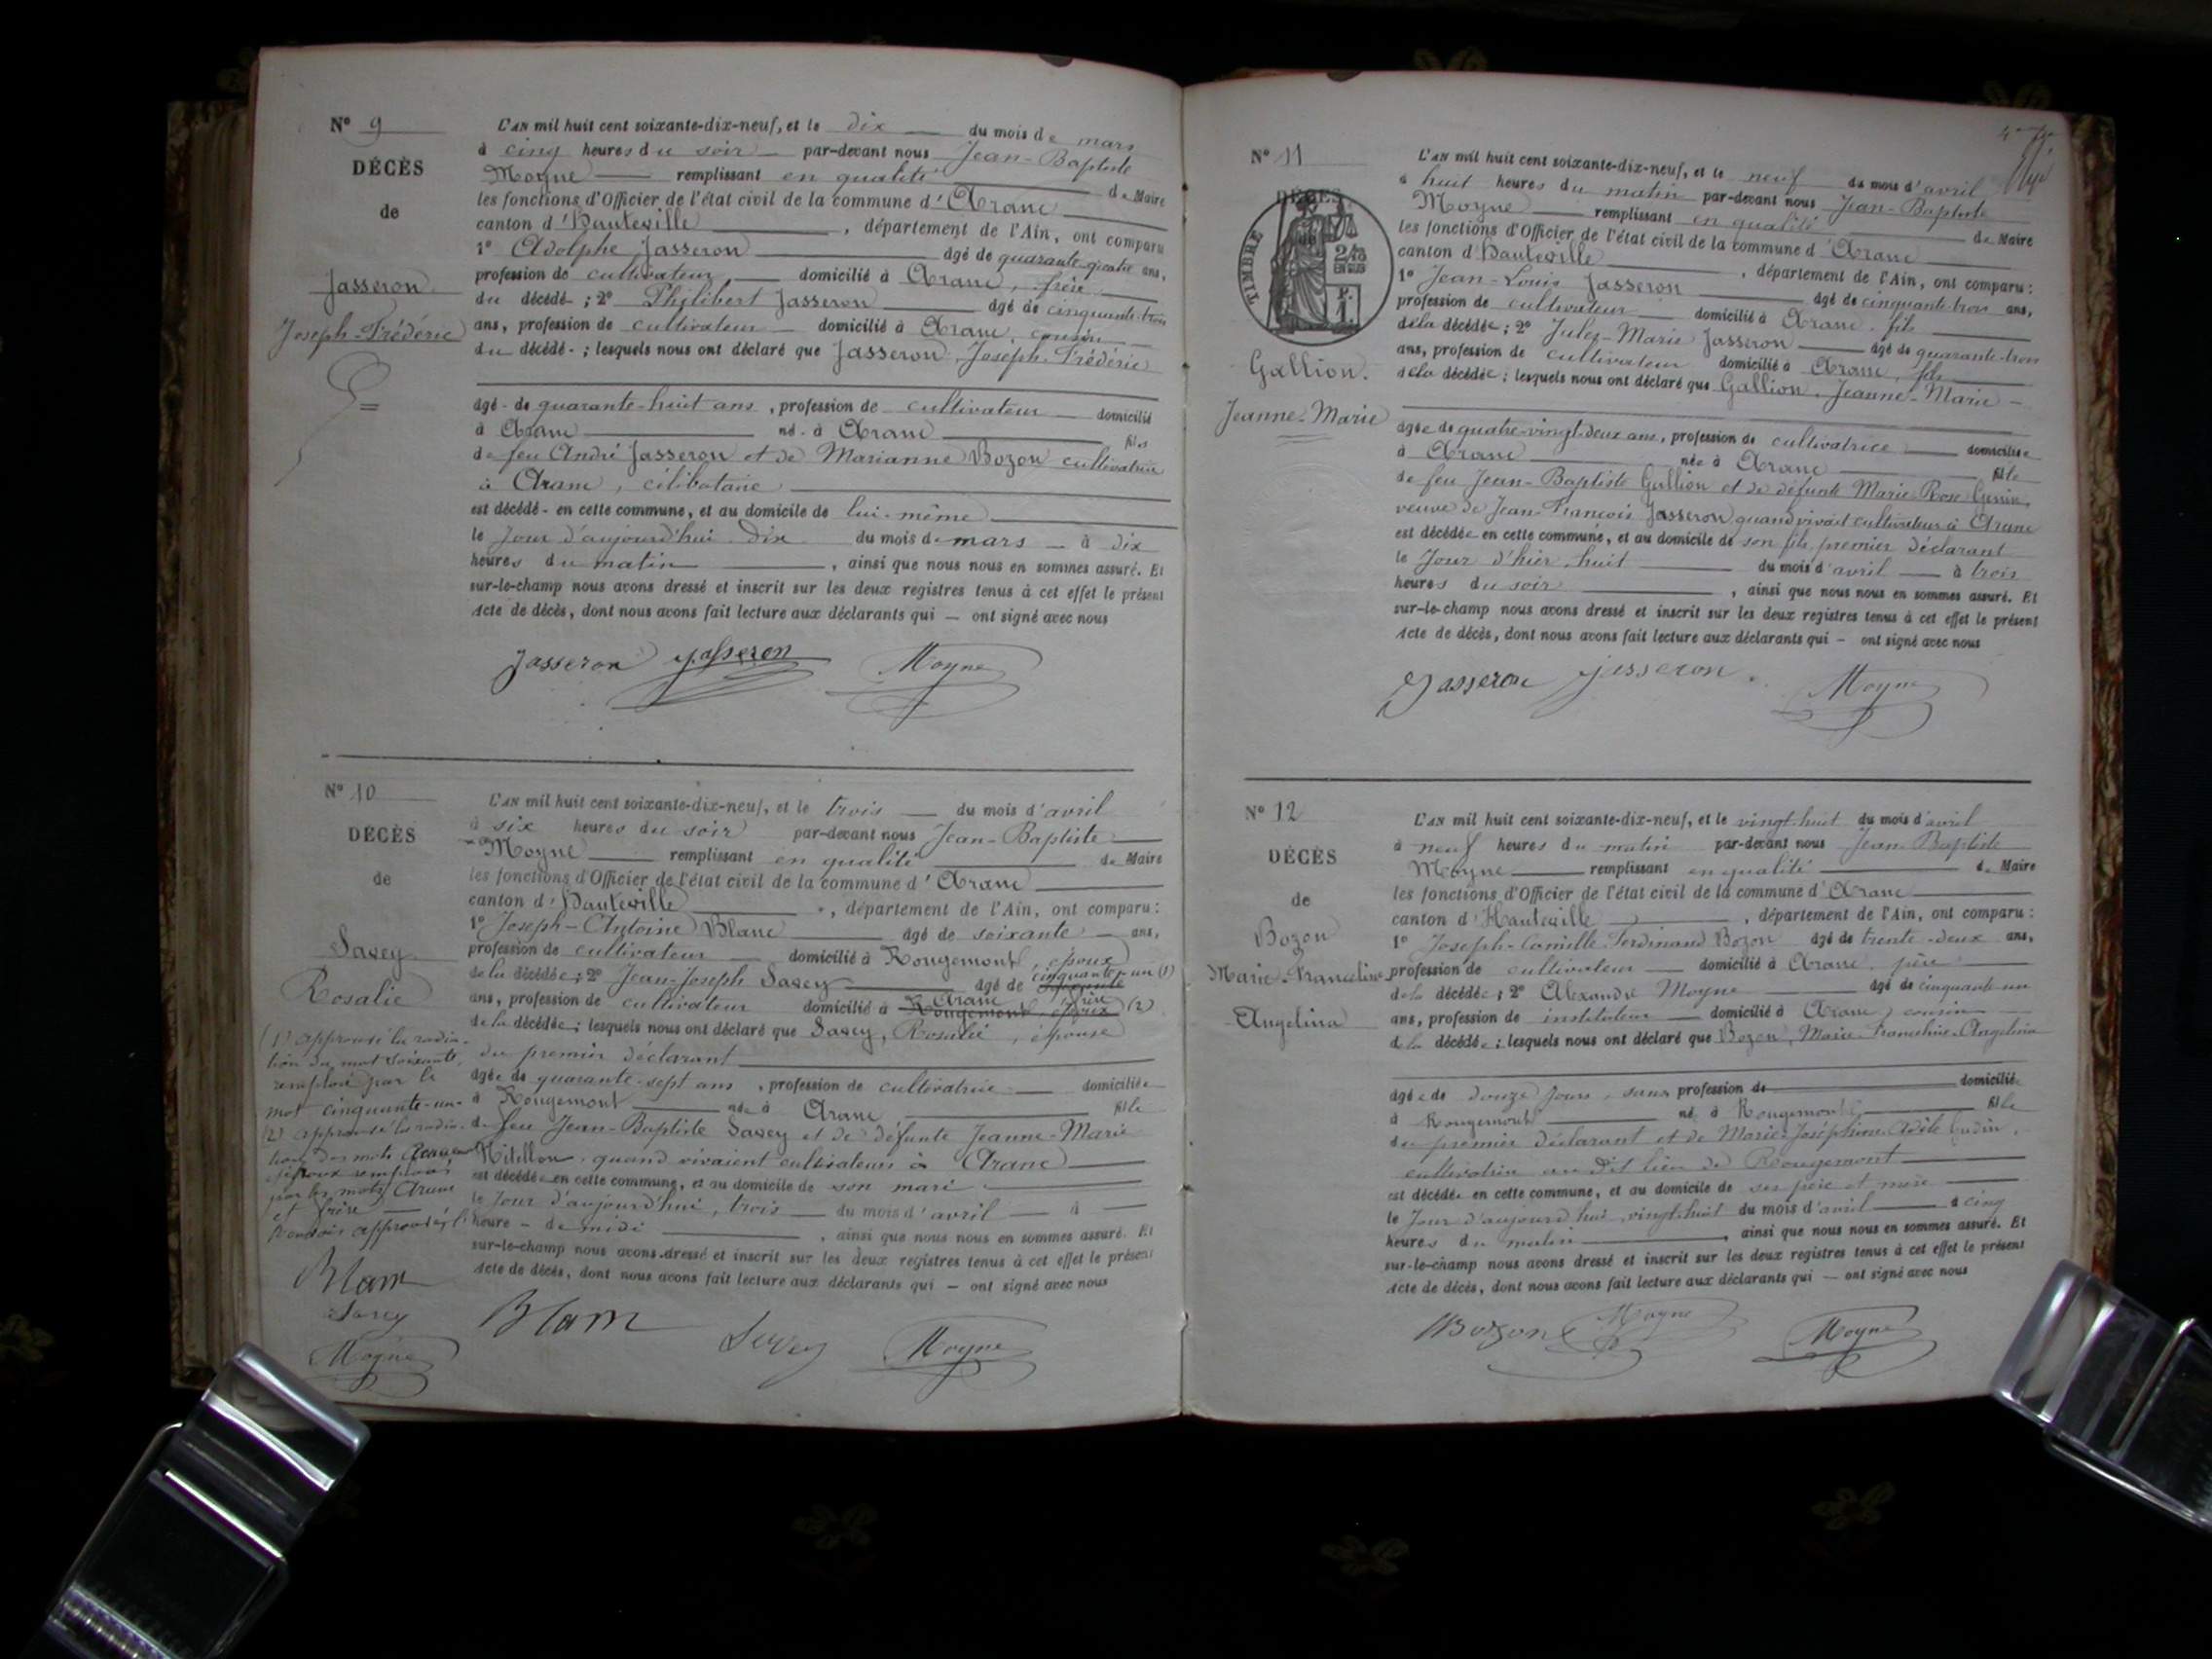 N° 9
DÉCÈS
de
Jasseron
Joseph-Frédéric
L'AN mil huit cent soixante-dix-neuf, et le dix du mois de mars
à cinq heures du soir par-devant nous Jean-Baptiste
Moyne remplissant en qualité de Maire
les fonctions d'Officier de l'état civil de la commune d'Aranc
canton d'Hauteville, département de l'Ain, ont comparu
1° Adolphe Jasseron âgé de quarante-quatre ans,
profession de cultivateur domicilié à Aranc, frère
du décédé ; 2° Philibert Jasseron âgé de cinquante-trois
ans, profession de cultivateur domicilié à Aranc, cousin
du décédé ; lesquels nous ont déclaré que Jasseron, Joseph-Frédéric
âgé de quarante-huit ans, profession de cultivateur domicilié
à Aranc né à Aranc fils
de feu André Jasseron et de Marianne Bozon cultivatrice
à Aranc, célibataire
est décédé en cette commune, et au domicile de lui-même
le Jour d'aujourd'hui dix du mois de mars à dix
heures du matin, ainsi que nous nous en sommes assuré. Et
sur-le-champ nous avons dressé et inscrit sur les deux registres tenus à cet effet le présent
Acte de décès, dont nous avons fait lecture aux déclarants qui — ont signé avec nous
Jasseron Jasseron Moyne
N° 10
DÉCÈS
de
Savey
Rosalie
(1) approuvé la radia-
tion du mot soixante,
remplacé par le
mot cinquante-un.
(2) approuvé la radia-
tion des mots
époux remplacés
par les mots Aranc
et frère
Blanc
Savey
Moyne
L'AN mil huit cent soixante-dix-neuf, et le trois du mois d'avril
à six heures du soir par-devant nous Jean-Baptiste
Moyne remplissant en qualité de Maire
les fonctions d'Officier de l'état civil de la commune d'Aranc
canton d'Hauteville, département de l'Ain, ont comparu :
1° Joseph-Antoine Blanc âgé de soixante ans,
profession de cultivateur domicilié à Rougemont, époux
de la décédée ; 2° Jean-Joseph Savey âgé de soixante cinquante-un (1)
ans, profession de cultivateur domicilié à Rougemont, époux Aranc, frère (2)
de la décédée ; lesquels nous ont déclaré que Savey, Rosalie, épouse
du premier déclarant
âgée de quarante-sept ans, profession de cultivatrice domiciliée
à Rougemont née à Aranc fille
de feu Jean-Baptiste Savey et de défunte Jeanne-Marie
quand vivaient cultivateurs à Aranc
est décédée en cette commune, et au domicile de son mari
le Jour d'aujourd'hui, trois du mois d'avril à —
heure — de midi, ainsi que nous nous en sommes assuré. Et
sur-le-champ nous avons dressé et inscrit sur les deux registres tenus à cet effet le présent
Acte de décès, dont nous avons fait lecture aux déclarants qui — ont signé avec nous
Blanc Savey Moyne
N° 11
DÉCÈS
TIMBRE
Gallion.
Jeanne-Marie
L'AN mil huit cent soixante-dix-neuf, et le neuf du mois d'avril
à huit heures du matin par-devant nous Jean-Baptiste
Moyne remplissant en qualité de Maire
les fonctions d'Officier de l'état civil de la commune d'Aranc
canton d'Hauteville, département de l'Ain, ont comparu :
1° Jean-Louis Jasseron âgé de cinquante-trois ans,
profession de cultivateur domicilié à Aranc, fils
de la décédée ; 2° Jules-Marie Jasseron âgé de quarante-trois
ans, profession de cultivateur domicilié à Aranc, fils
de la décédée ; lesquels nous ont déclaré que Gallion, Jeanne-Marie
âgée de quatre-vingt-deux ans, profession de cultivatrice domiciliée
à Aranc née à Aranc fille
de feu Jean-Baptiste Gallion et de défunte Marie-Rose
veuve de Jean-François Jasseron quand vivait cultivateur à Aranc
est décédée en cette commune, et au domicile de son fils, premier déclarant
le Jour d'hier, huit du mois d'avril à trois
heures du soir, ainsi que nous nous en sommes assuré. Et
sur-le-champ nous avons dressé et inscrit sur les deux registres tenus à cet effet le présent
Acte de décès, dont nous avons fait lecture aux déclarants qui — ont signé avec nous
Jasseron Jasseron. Moyne
N° 12
DÉCÈS
de
Bozon
Marie-Franceline
Angelina
L'AN mil huit cent soixante-dix-neuf, et le vingt-huit du mois d'avril
à neuf heures du matin par-devant nous Jean-Baptiste
Moyne remplissant en qualité de Maire
les fonctions d'Officier de l'état civil de la commune d'Aranc
canton d'Hauteville, département de l'Ain, ont comparu :
1° Joseph-Camille-Ferdinand Bozon âgé de trente-deux ans,
profession de cultivateur domicilié à Aranc, père
de la décédée ; 2° Alexandre Moyne âgé de cinquante-un
ans, profession de instituteur domicilié à Aranc, cousin
de la décédée ; lesquels nous ont déclaré que Bozon, Marie-Franceline-Angelina
âgée de douze jours, sans profession de domiciliée
à Rougemont née à Rougemont fille
du premier déclarant et de Marie-Joséphine-Adèle
cultivatrice au dit lieu de Rougemont
est décédée en cette commune, et au domicile de ses père et mère
le Jour d'aujourd'hui, vingt-huit du mois d'avril à cinq
heures du matin, ainsi que nous nous en sommes assuré. Et
sur-le-champ nous avons dressé et inscrit sur les deux registres tenus à cet effet le présent
Acte de décès, dont nous avons fait lecture aux déclarants qui — ont signé avec nous
Bozon Moyne Moyne